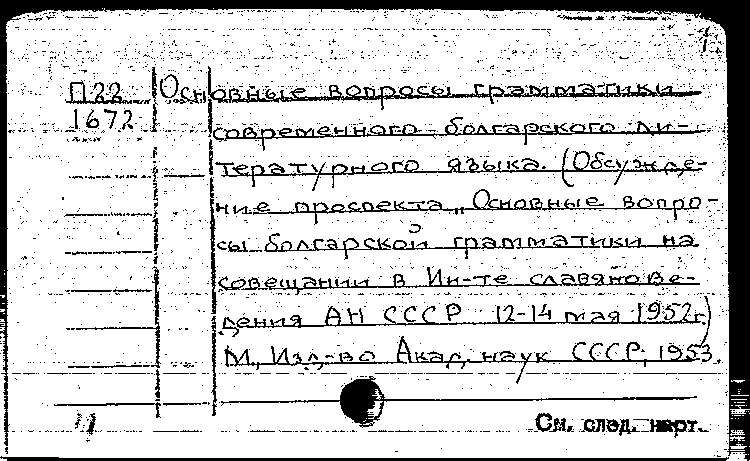 1
П 22 Основные вопросы грамматики
1672
современного болгарского ли-
тературного языка. (Обсужде-
ние проспекта „Основные вопро-
сы болгарской грамматики на
совещании в Ин-те славянове-
дения АН СССР 12-14 мая 1952г.)
М., Изд-во Акад. наук СССР, 1953.
См. след. карт.